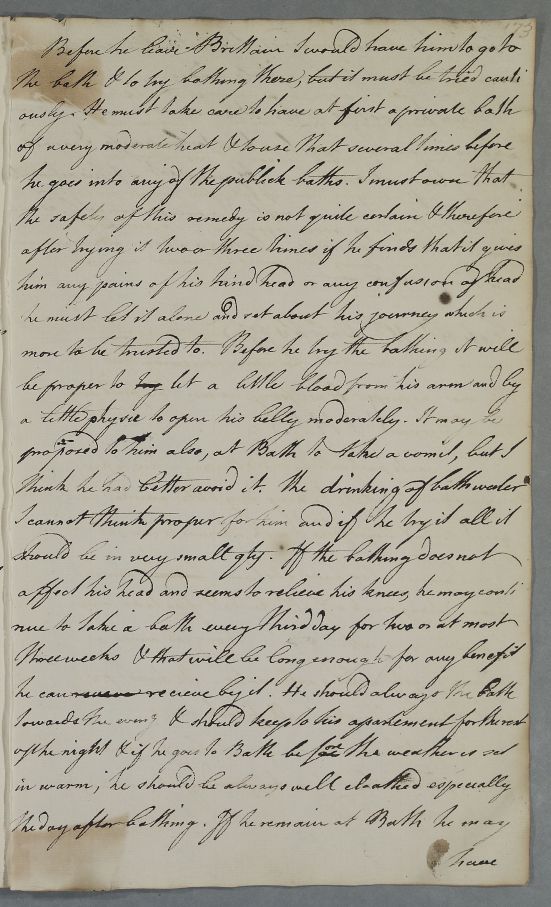 173
Before he leave Brittain I would have him to go to
the bath & to try bathing there, but it must be tried cauti
ously. He must take care to have at first a private bath
of a very moderate heat & to use that several times before
he goes into any of the publick baths. I must own that
the safety of this remedy is not quite certain & therefore
after trying it two or three times if he finds that it gives
him any pains of his hind head or any confusion of head
he must let it alone and set about his journey which is
more to be trusted to. Before he try the bathing it will
be proper to try let a little blood from his arm and by
a little physic to open his belly moderately. It may be
proposed to him also, at Bath to take a vomit, but I
think he had better avoid it. The drinking of bath water
I cannot think proper for him and if he try it all it
should be in very small qty. If the bathing does not
affect his head and seems to relieve his knees, he may conti
nue to take a bath every third day for two or at most
three weeks & that will be long enough for any benefit
he can recieve by it. He should always the bath
towards the eveng & should keep to his apartement for the rest
of the night & if he goes to Bath before the weather is set
in warm, he should be always well cloathed especially
the day after bathing. If he remain at Bath he may
have